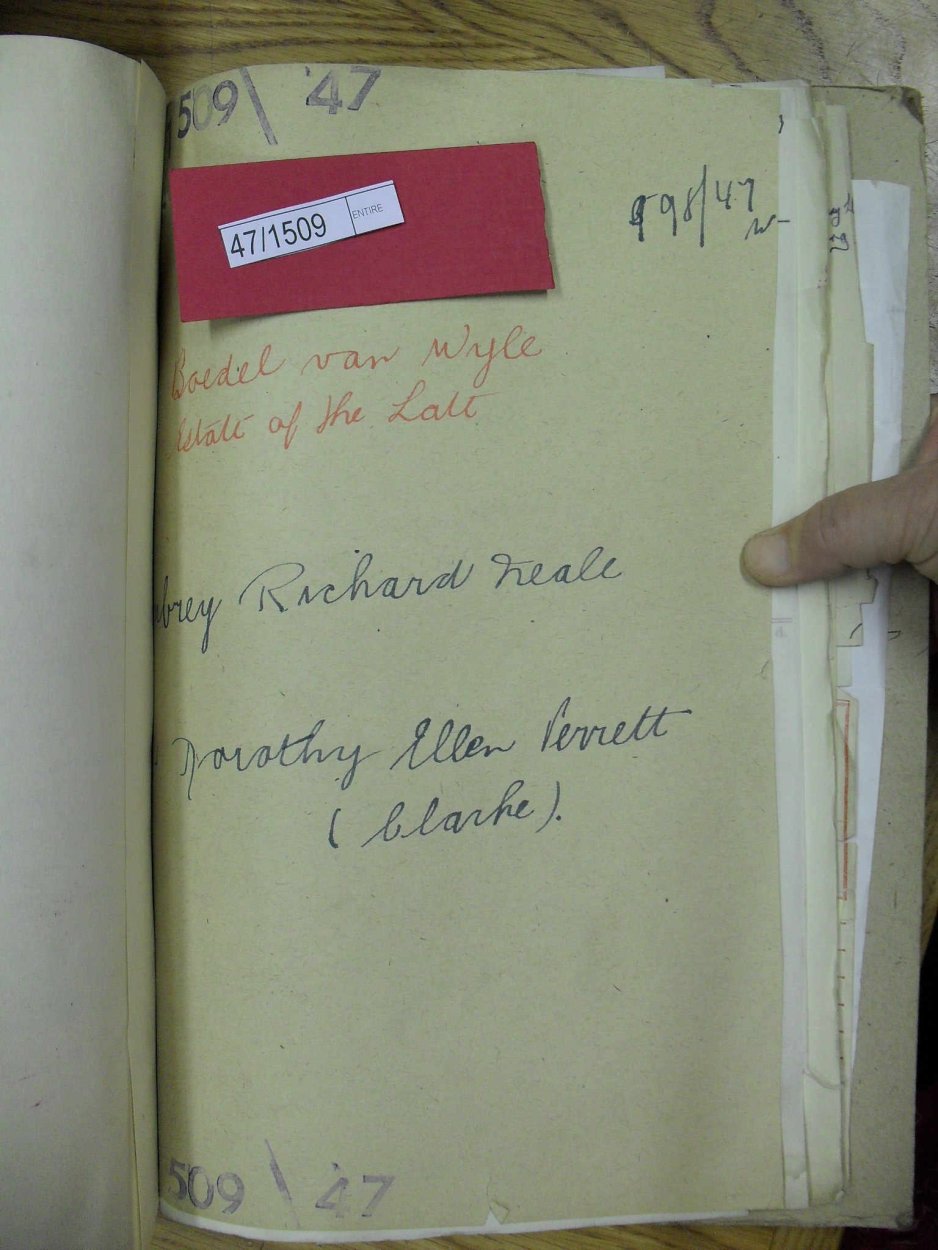 509 \ '47
47/1509 ENTIRE
98/47
Boedel van Wyle
Estate of the Late
brey Richard Neale
Dorothy Ellen Perrett
(Clarke).
509 \ '47